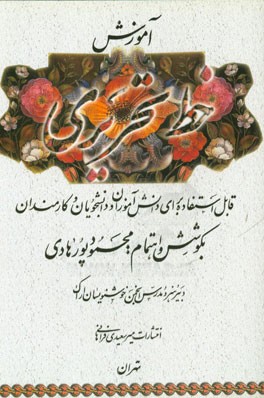 آموزش
خط تحریری
قابل استفاده برای دانش آموزان و دانشجویان و کارمندان
بکوشش و اهتمام: محمود پورهادی
دبیر هنر و مدرس انجمن خوشنویسان اراک
انتشارات میرسعیدی فراهانی
تهران